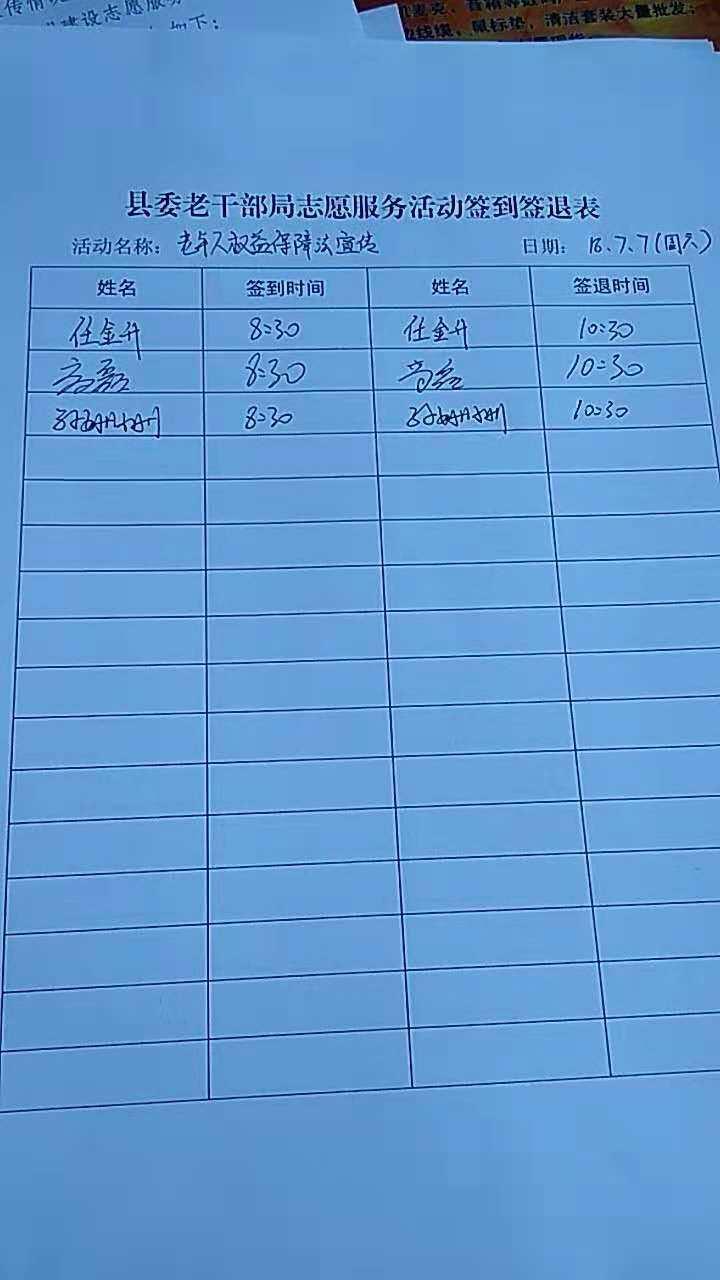 建设志愿服务
如下：
音箱等数码
线缆，鼠标垫，清洁套装大量批发；
县委老干部局志愿服务活动签到签退表
活动名称：老年人权益保障法宣传 日期：18.7.7(周六)
姓名 签到时间 姓名 签退时间
任金升 8:30 任金升 10:30
高磊 8:30 高磊 10:30
8:30 10:30